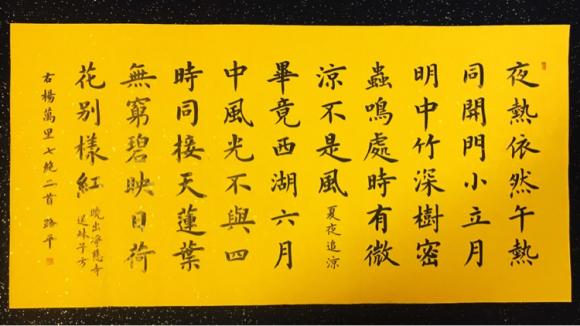 夜熱依然午熱
同開門小立月
明中竹深樹密
蟲鳴處時有微
涼不是風 夏夜追涼
畢竟西湖六月
中風光不與四
時同接天蓮葉
無窮碧映日荷
花別樣紅
曉出淨慈寺
送林子方
右楊萬里七絕二首 路平